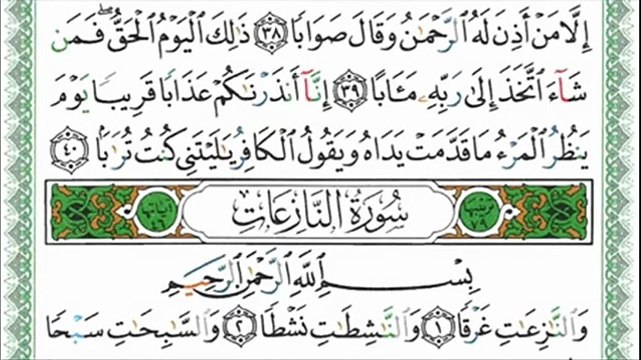 إِلَّا مَنْ أَذِنَ لَهُ ٱلرَّحْمَٰنُ وَقَالَ صَوَابًا ٣٨ ذَٰلِكَ ٱلْيَوْمُ ٱلْحَقُّ ۖ فَمَن
شَآءَ ٱتَّخَذَ إِلَىٰ رَبِّهِۦ مَـَٔابًا ٣٩ إِنَّآ أَنذَرْنَٰكُمْ عَذَابًا قَرِيبًا يَوْمَ
يَنظُرُ ٱلْمَرْءُ مَا قَدَّمَتْ يَدَاهُ وَيَقُولُ ٱلْكَافِرُ يَٰلَيْتَنِى كُنتُ تُرَٰبًۢا ٤٠
سُورَةُ النَّازِعَاتِ
بِسْمِ ٱللَّهِ ٱلرَّحْمَٰنِ ٱلرَّحِيمِ
وَٱلنَّٰزِعَٰتِ غَرْقًا ١ وَٱلنَّٰشِطَٰتِ نَشْطًا ٢ وَٱلسَّٰبِحَٰتِ سَبْحًا